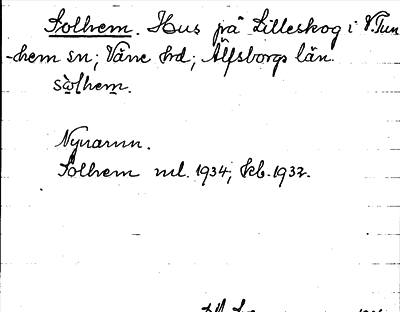 Solhem. Hus på Lilleskog i V. Tun
-hem sn; Väne hd; Älfsborgs län.
sòlhem.
Nynamn.
Solhem ml. 1934; kb. 1932.